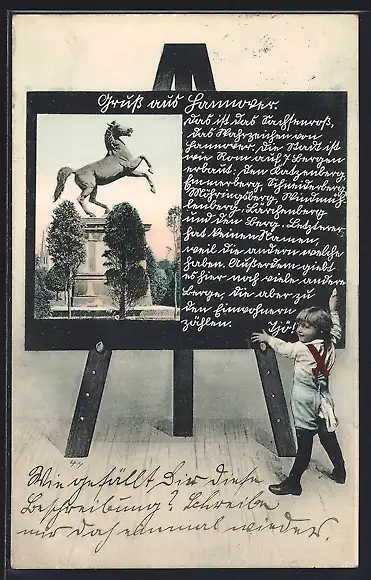 Gruß aus Hannover.
Das ist das Sachsenroß,
das Wahrzeichen von
Hannover, die Stadt ist
wie Rom auf 7 Bergen
erbaut: den Katzenberg
Emmerberg, Schneiderberg
Möhringsberg, Windmüh-
lenberg, Lärchenberg
und den Berg. Letzterer
hat keinen Namen,
weil die andern welche
haben. Außerdem giebt
es hier noch viele andere
Berge, die aber zu
den Einwohnern
zählen.
Wie gefällt Dir diese
Beschreibung? Schreibe
mir doch einmal wieder.